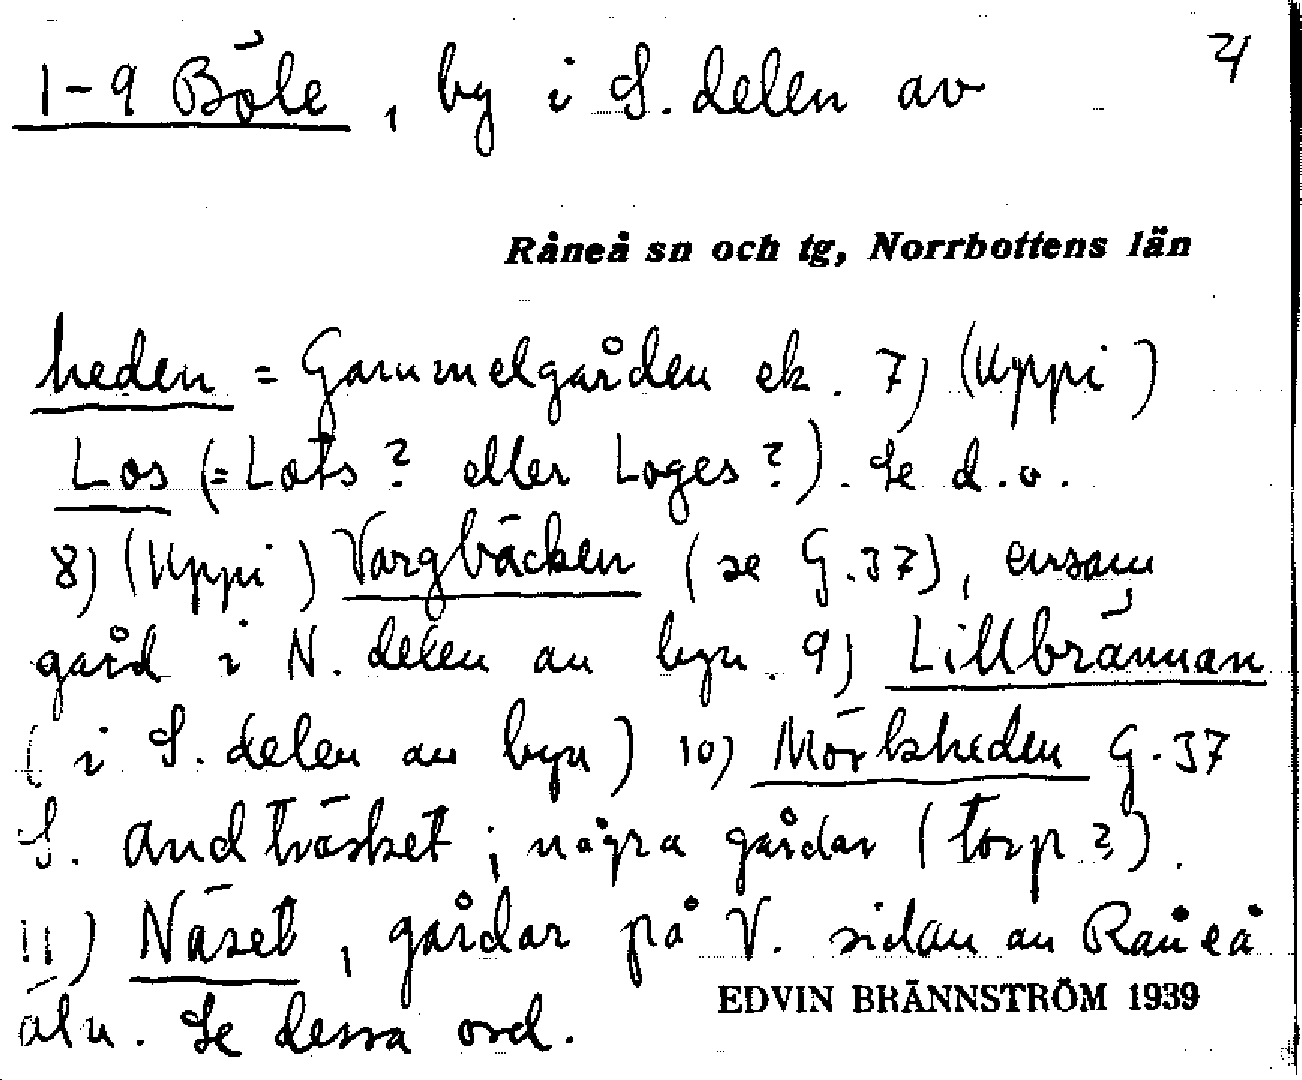 1-9 Böle, by i S. delen av 4
Råneå sn och tg, Norrbottens län
heden = Gammelgården ek. 7) (Uppi)
Los (= Lots? eller Loges?). Se d.o.
8) (Uppi) Vargbäcken (se G.37), ensam
gård i N. delen av byn. 9) Lillbrännan
(i S. delen av byn) 10) Mörksheden G.37
S. Andträsket; några gårdar (torp?).
11) Näset, gårdar på V. sidan av Råneå
älv. Se dessa ord.
EDVIN BRÄNNSTRÖM 1939